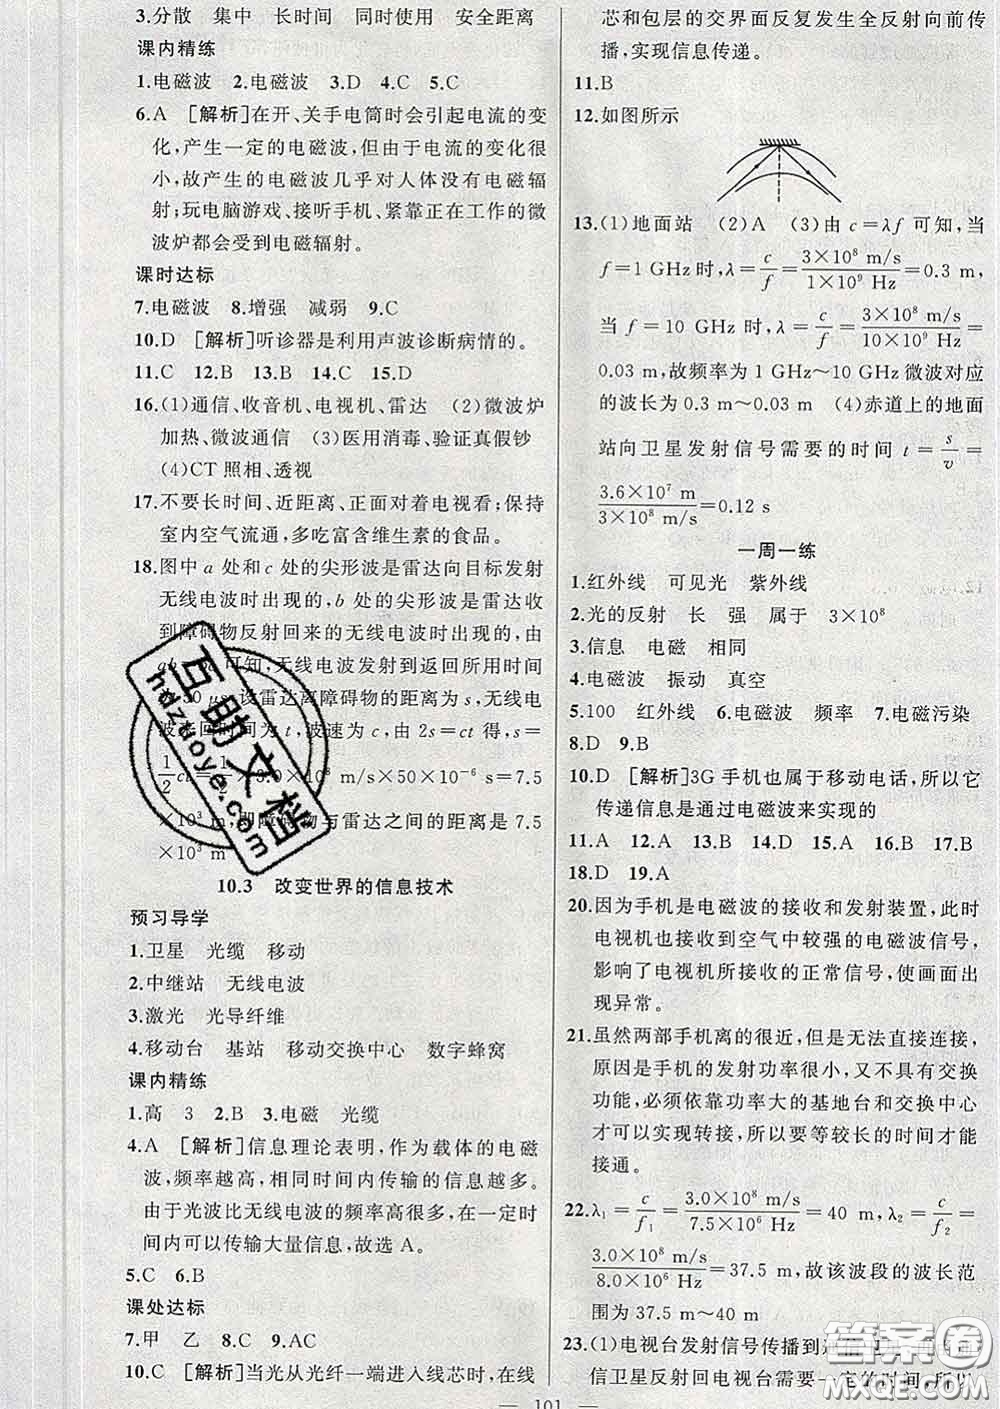 3.分散 集中 长时间 同时使用 安全距离
课内精练
1.电磁波 2.电磁波 3.D 4.C 5.C
6.A [解析]在开、关手电筒时会引起电流的变
化,产生一定的电磁波,但由于电流的变化很
小,故产生的电磁波几乎对人体没有电磁辐
射;玩电脑游戏、接听手机、紧靠正在工作的微
波炉都会受到电磁辐射。
课时达标
7.电磁波 8.增强 减弱 9.C
10.D [解析]听诊器是利用声波诊断病情的。
11.C 12.B 13.B 14.C 15.D
16.(1)通信、收音机、电视机、雷达 (2)微波炉
加热、微波通信 (3)医用消毒、验证真假钞
(4)CT照相、透视
17.不要长时间、近距离、正面对着电视看;保持
室内空气流通,多吃富含维生素的食品。
18.图中 a 处和 c 处的尖形波是雷达向目标发射
无线电波时出现的,b 处的尖形波是雷达收
到障碍物反射回来的无线电波时出现的,由
可知,无线电波发射到返回所用时间
50 μs,设雷达离障碍物的距离为 s,无线电
波来回时间为 t,波速为 c,由 2s=ct 得,s=
1/2 ct=1/2×3.0×10⁸ m/s×50×10⁻⁶ s=7.5
×10³ m,即障碍物与雷达之间的距离是 7.5
×10³ m
10.3 改变世界的信息技术
预习导学
1.卫星 光缆 移动
2.中继站 无线电波
3.激光 光导纤维
4.移动台 基站 移动交换中心 数字蜂窝
课内精练
1.高 3 2.B 3.电磁 光缆
4.A [解析]信息理论表明,作为载体的电磁
波,频率越高,相同时间内传输的信息越多。
由于光波比无线电波的频率高很多,在一定时
间内可以传输大量信息,故选 A。
5.C 6.B
课处达标
7.甲 乙 8.C 9.AC
10.C [解析]当光从光纤一端进入线芯时,在线
芯和包层的交界面反复发生全反射向前传
播,实现信息传递。
11.B
12.如图所示
13.(1)地面站 (2)A (3)由 c=λf 可知,当
f=1 GHz 时,λ=c/f=3×10⁸ m/s/1×10⁹ Hz=0.3 m,
当 f=10 GHz 时,λ=c/f=3×10⁸ m/s/10×10⁹ Hz=
0.03 m,故频率为 1 GHz~10 GHz 微波对应
的波长为 0.3 m~0.03 m (4)赤道上的地面
站向卫星发射信号需要的时间 t=s/v=
3.6×10⁷ m/3×10⁸ m/s=0.12 s
一周一练
1.红外线 可见光 紫外线
2.光的反射 长 强 属于 3×10⁸
3.信息 电磁 相同
4.电磁波 振动 真空
5.100 红外线 6.电磁波 频率 7.电磁污染
8.D 9.B
10.D [解析]3G 手机也属于移动电话,所以它
传递信息是通过电磁波来实现的
11.A 12.A 13.A 14.D 15.A 16.B 17.B
18.D 19.A
20.因为手机是电磁波的接收和发射装置,此时
电视机也接收到空气中较强的电磁波信号,
影响了电视机所接收的正常信号,使画面出
现异常。
21.虽然两部手机离的很近,但是无法直接连接,
原因是手机的发射功率很小,又不具有交换
功能,必须依靠功率大的基地台和交换中心
才可以实现转接,所以要等较长的时间才能
接通。
22.λ₁=c/f₁=3.0×10⁸ m/s/7.5×10⁶ Hz=40 m,λ₂=c/f₂=
3.0×10⁸ m/s/8.0×10⁶ Hz=37.5 m,故该波段的波长范
围为 37.5 m~40 m
23.(1)电视台发射信号传播到通信卫
信卫星反射回电视台需要一定的时间,所以
— 101 —
互助文档
hdzuoye.com
答案圈
MXQE.COM